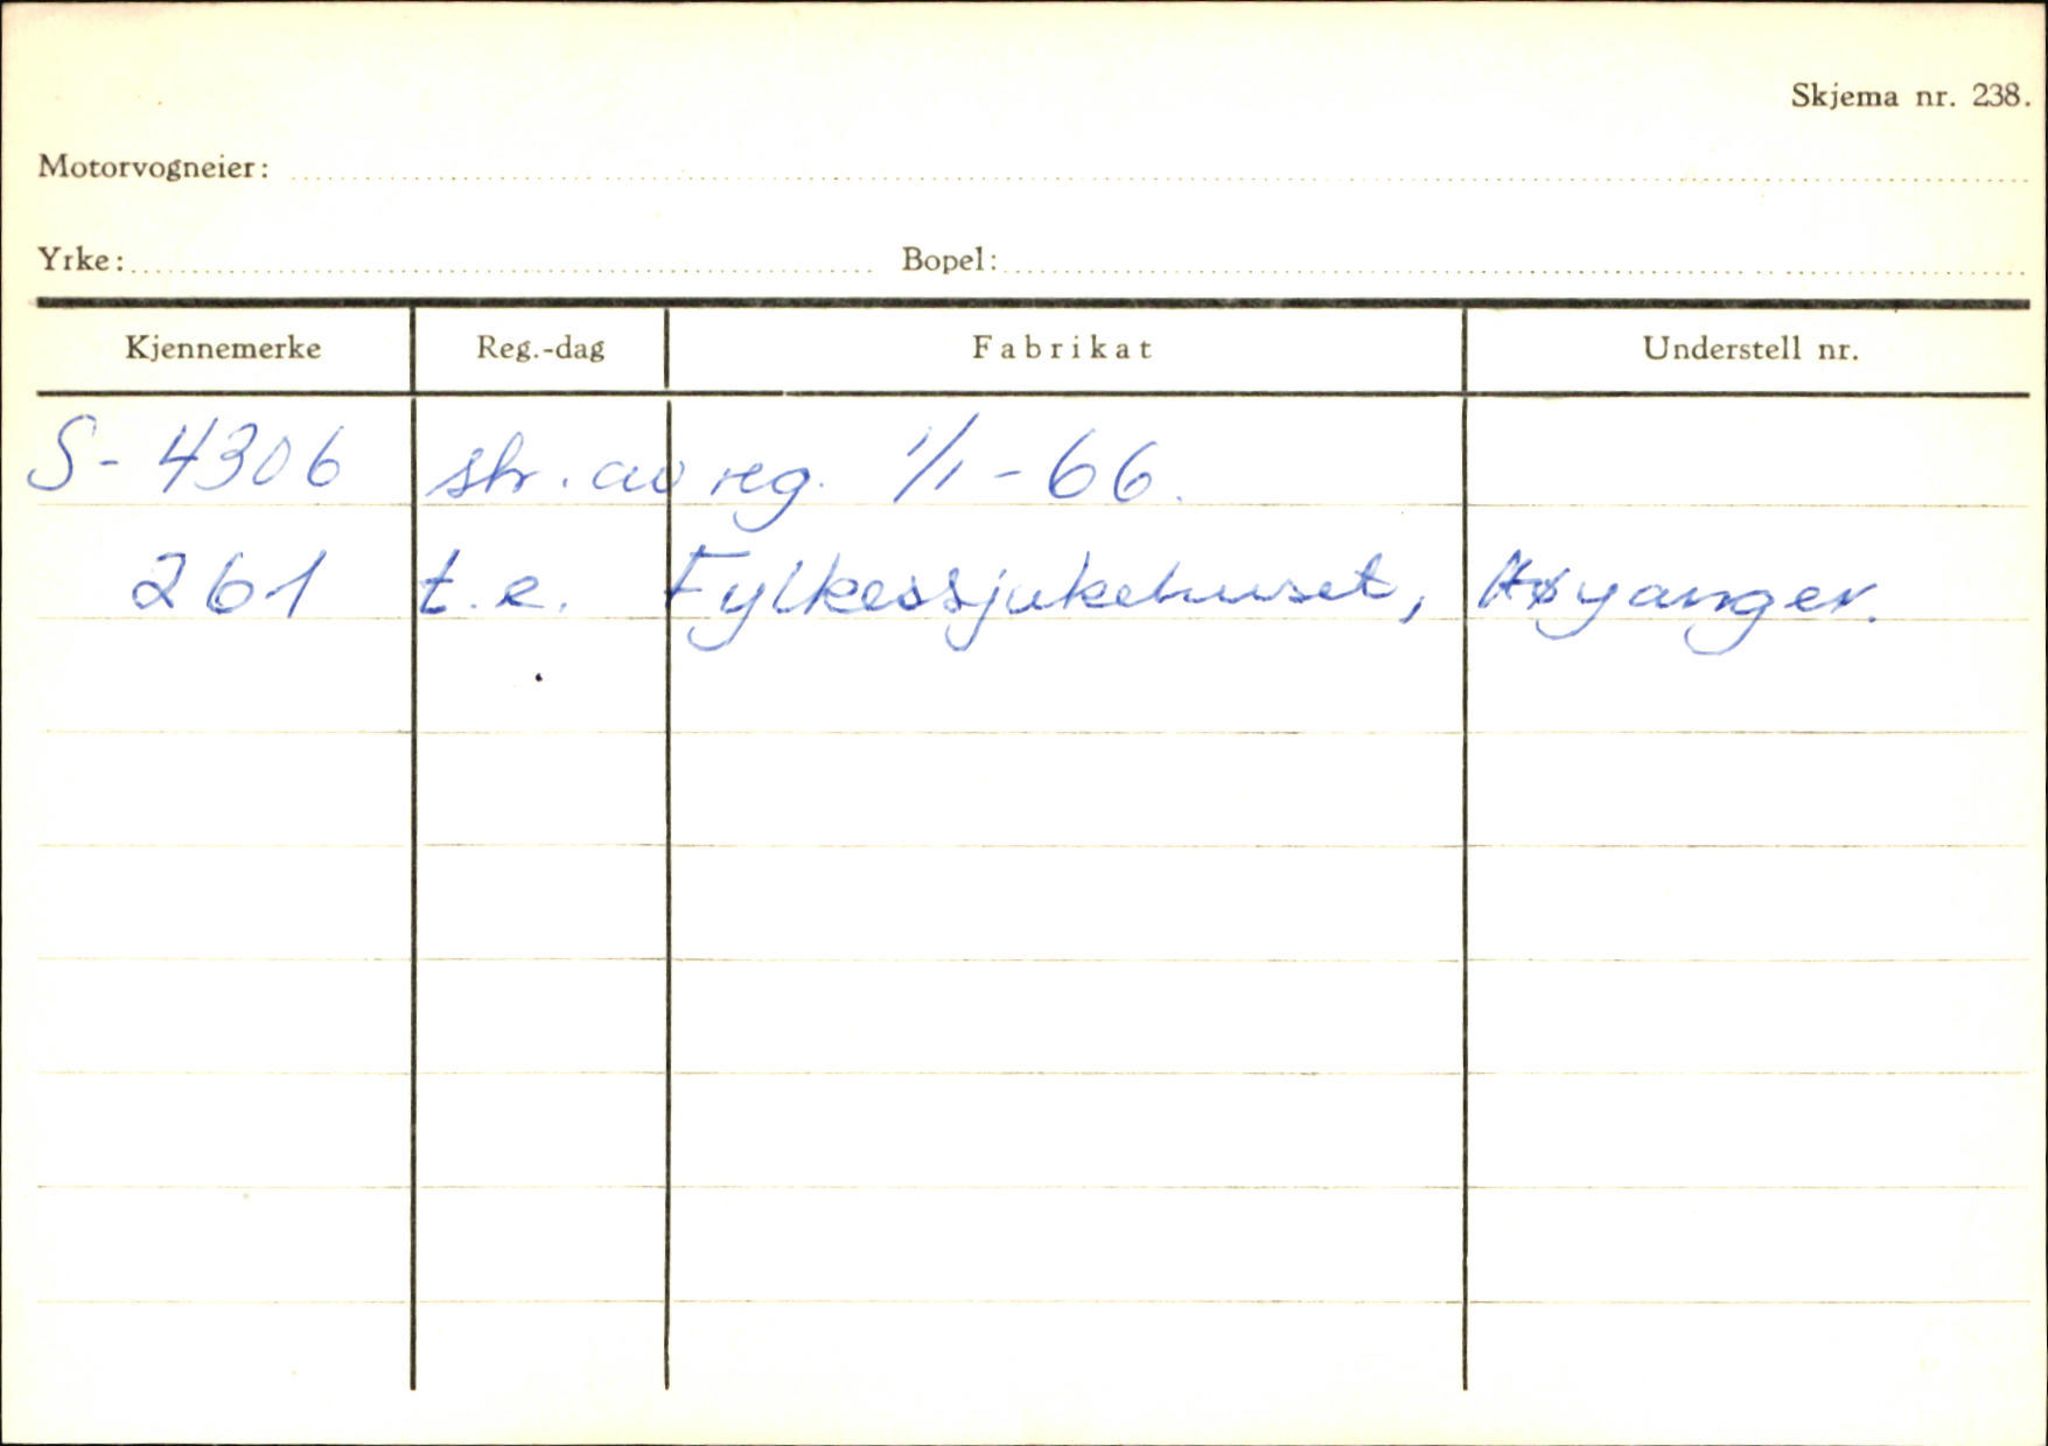 Skjema nr. 238.
Motorvogneier:
Yrke: Bopel:
Kjennemerke Reg.-dag Fabrikat Understell nr.
S- 4306 str. av reg. 1/1-66.
261 t.e. Fylkessjukehuset, Høyanger.